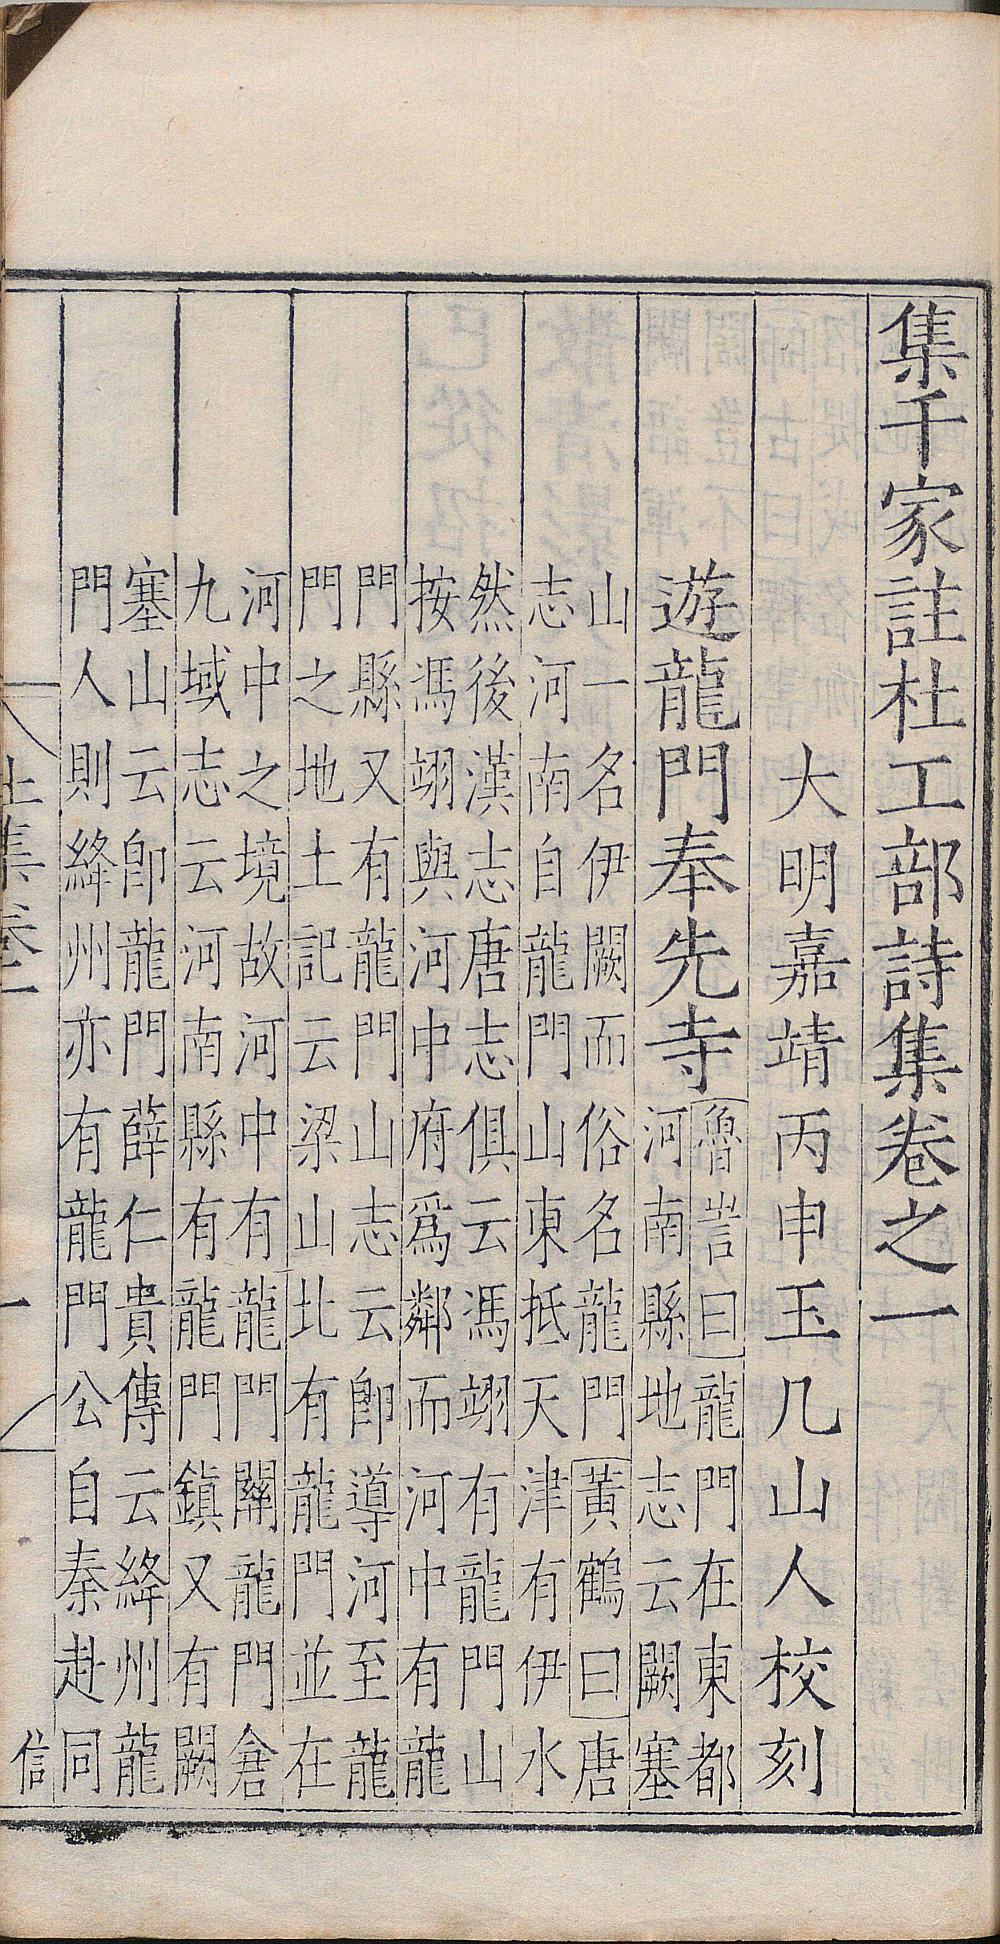 集千家註杜工部詩集卷之一
大明嘉靖丙申玉几山人校刻
遊龍門奉先寺
魯訔曰龍門在東都
河南縣地志云闕塞
山一名伊闕而俗名龍門黃鶴曰唐
志河南自龍門山東抵天津有伊水
然後漢志唐志俱云馮翊有龍門山
按馮翊與河中府爲鄰而河中有龍
門縣又有龍門山志云卽導河至龍
門之地土記云梁山北有龍門並在
河中之境故河中有龍門關龍門倉
九域志云河南縣有龍門鎮又有闕
塞山云卽龍門薛仁貴傳云絳州龍
門人則絳州亦有龍門公自秦赴同
杜集卷一
一
信